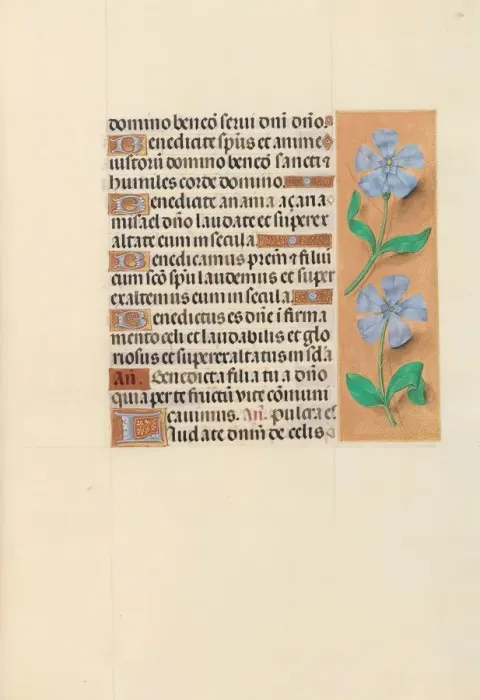 domino bencō serui dnī dño
Benedicite sp̄us et anime
iustorū domino bencō sancti ⁊
humiles corde domino.
Benedicite anania açaria
misael dño laudate et superex
altate eum in secula.
Benedicamus prem̄ ⁊ filiū
cum scō sp̄u laudemus et super
exaltemus eum in secula.
Benedictus es dñe ī firma
mento celi et laudabilis et glo
riosus et superexaltatus in sc̄la
An̄. Benedicta filia tu a dño
quia per te fructū vite cōmuni
cauimus. An̄. Pulcra es
Laudate dnm̄ de celis